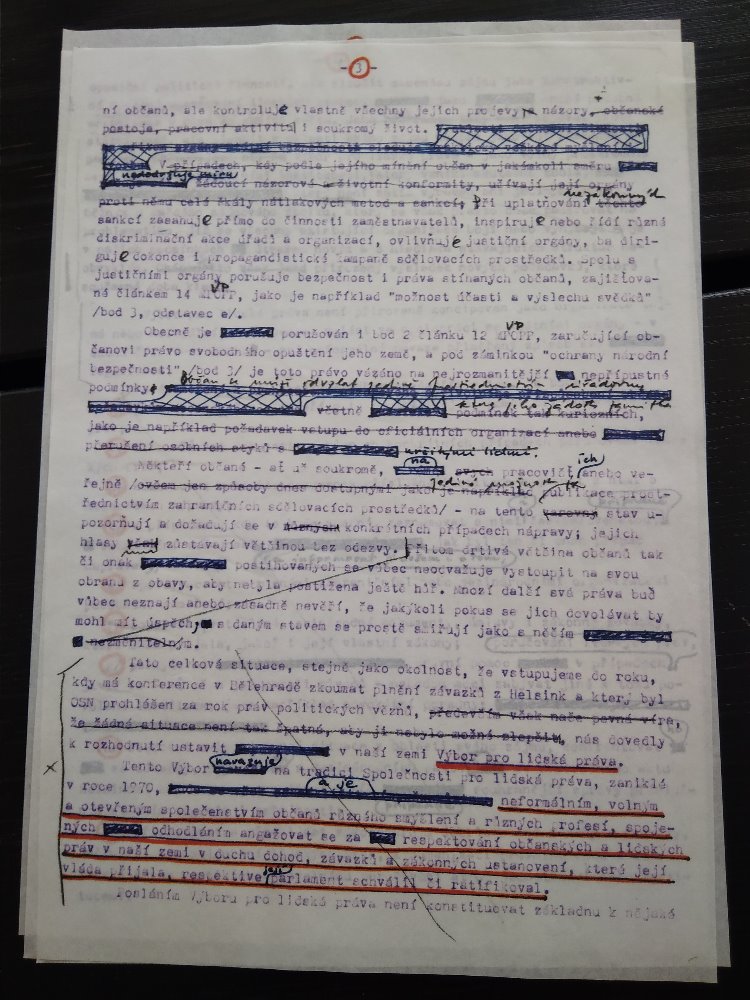 - 3 -
ní občanů, ale kontroluje vlastně všechny jejich projevy a názory, občanské
postoje, pracovní aktivitu i soukromý život.
V případech, kdy podle jejího mínění občan v jakémkoli směru
nedodržuje mírou
žádoucí názorové a životní konformity, užívají její orgány
proti němu celé škály nátlakových metod a sankcí; Při uplatňování těchto nezákonných
sankcí zasahuje přímo do činnosti zaměstnavatelů, inspiruje nebo řídí různé
diskriminační akce úřadů a organizací, ovlivňuje justiční orgány, ba diri-
guje dokonce i propagandistické kampaně sdělovacích prostředků. Spolu s
justičními orgány porušuje bezpečnost i práva stíhaných občanů, zajišťova-
ná článkem 14 VP, jako je například "možnost účasti a výslechu svědků"
/bod 3, odstavec e/.
Obecně je porušován i bod 2 článku 12 VP, zaručující ob-
čanovi právo svobodného opuštění jeho země, a pod záminkou "ochrany národní
bezpečnosti" /bod 3/ je toto právo vázáno na nejrozmanitější nepřípustné
podmínky.
včetně podmínek tak kuriozních,
jako je například požadavek vstupu do oficiálních organizací anebo
přerušení osobních styků s určitými lidmi.
Někteří občané - ať už soukromě, na svých pracovištích anebo ve-
řejně /ovšem jen způsoby dnes dostupnými jako je například publikace prost-
jediné možnosti
řednictvím zahraničních sdělovacích prostředků/ - na tento stav u-
pozorňují a dožadují se v různých konkrétních případech nápravy; jejich
hlasy však zůstávají většinou bez odezvy. Přitom drtivá většina občanů tak
či onak postihovaných se vůbec neodvažuje vystoupit na svou
obranu z obavy, aby nebyla postižena ještě hůř. Mnozí další svá práva buď
vůbec neznají anebo zásadně nevěří, že jakýkoli pokus se jich dovolávat by
mohl mít úspěch, s daným stavem se prostě smiřují jako s něčím
nezměnitelným.
Tato celková situace, stejně jako okolnost, že vstupujeme do roku,
kdy má konference v Bělehradě zkoumat plnění závazků z Helsink a který byl
OSN prohlášen za rok práv politických vězňů, především však naše pevná víra,
že žádná situace není tak špatná, aby ji nebylo možné zlepšit, nás dovedly
k rozhodnutí ustavit v naší zemi Výbor pro lidská práva.
Tento Výbor navazuje na tradici Společnosti pro lidská práva, zaniklé
v roce 1970, a je neformálním, volným
a otevřeným společenstvím občanů různého smýšlení a různých profesí, spoje-
ných odhodláním angažovat se za respektování občanských a lidských
práv v naší zemi v duchu dohod, závazků a zákonných ustanovení, která její
vláda přijala, respektive parlament schválil či ratifikoval.
Posláním Výboru pro lidská práva není konstituovat základnu k nějaké